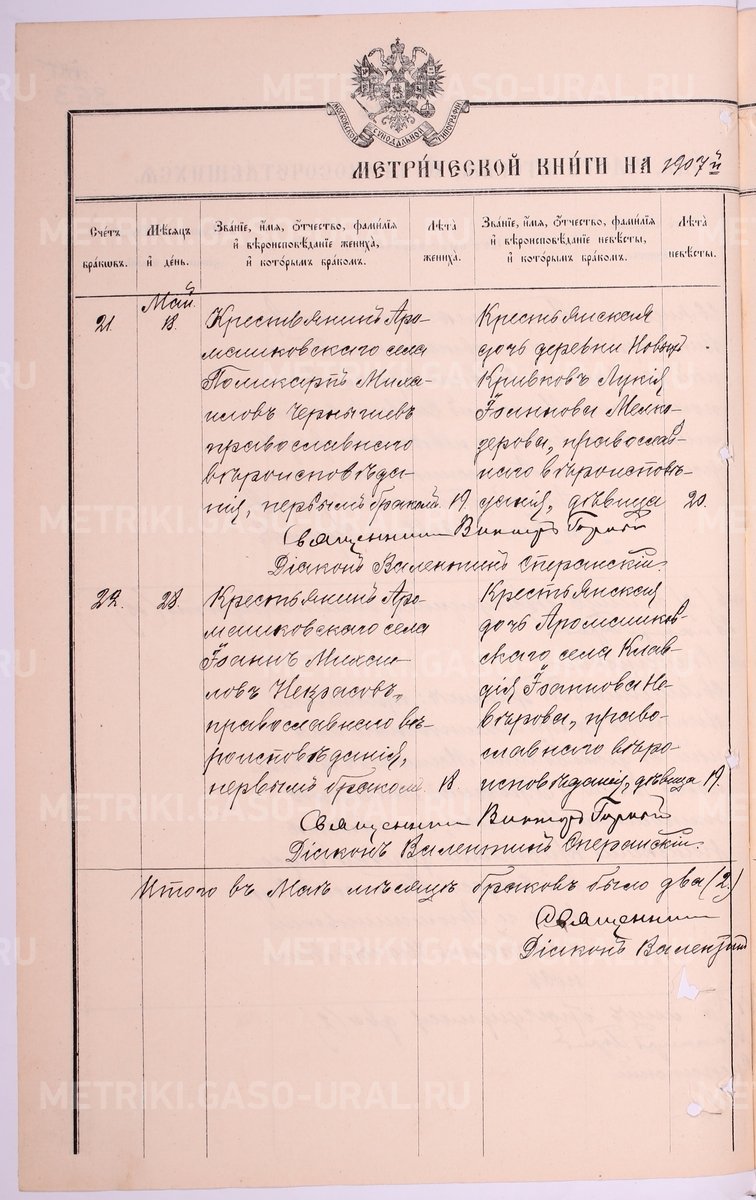 МОСКОВСКОЙ СѴНОДАЛЬНОЙ ТИПОГРАФІИ
МЕТРИ́ЧЕСКОЙ КНИ́ГИ НА 1907й
Сче́тъ бра́кѡвъ.
Мѣ́сяцъ и҆ де́нь.
Зва́нїе, и҆́мя, ѻ҆́тчество, фами́лїя и҆ вѣроисповѣ́данїе жениха̀, и҆ кото́рымъ бра́комъ.
Лѣ́та жениха̀.
Зва́нїе, и҆́мя, ѻ҆́тчество, фами́лїя и҆ вѣроисповѣ́данїе невѣ́сты, и҆ кото́рымъ бра́комъ.
Лѣ́та невѣ́сты.
21.
Май.
18.
Крестьянинъ Аро-
машковскаго села
Поликарпъ Миха-
иловъ Чернышевъ
православнаго
вѣроисповѣда-
нія, первымъ бракомъ.
19.
Крестьянская
дочь деревни Новыхъ
Кривковъ Лукія
Іоаннова Мелко-
зерова, православ-
наго вѣроисповѣ-
данія, дѣвица
20.
Священникъ Викторъ
Діаконъ Валентинъ Сперанскій.
22.
28.
Крестьянинъ Аро-
машковскаго села
Іоаннъ Михаи-
ловъ Некрасовъ,
православнаго вѣ-
роисповѣданія,
первымъ бракомъ
18.
Крестьянская
дочь Аромашков-
скаго села Клав-
дія Іоаннова Не-
вѣрова, право-
славнаго вѣро-
исповѣданія, дѣвица
19.
Священникъ Викторъ
Діаконъ Валентинъ Сперанскій.
Итого въ Маѣ мѣсяцѣ браковъ было два (2.)
Священникъ
Діаконъ Валентинъ
METRIKI.GASO-URAL.RU